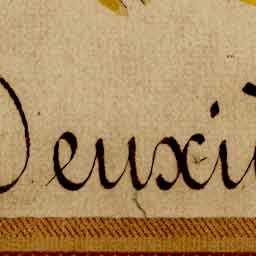 Deuxiè